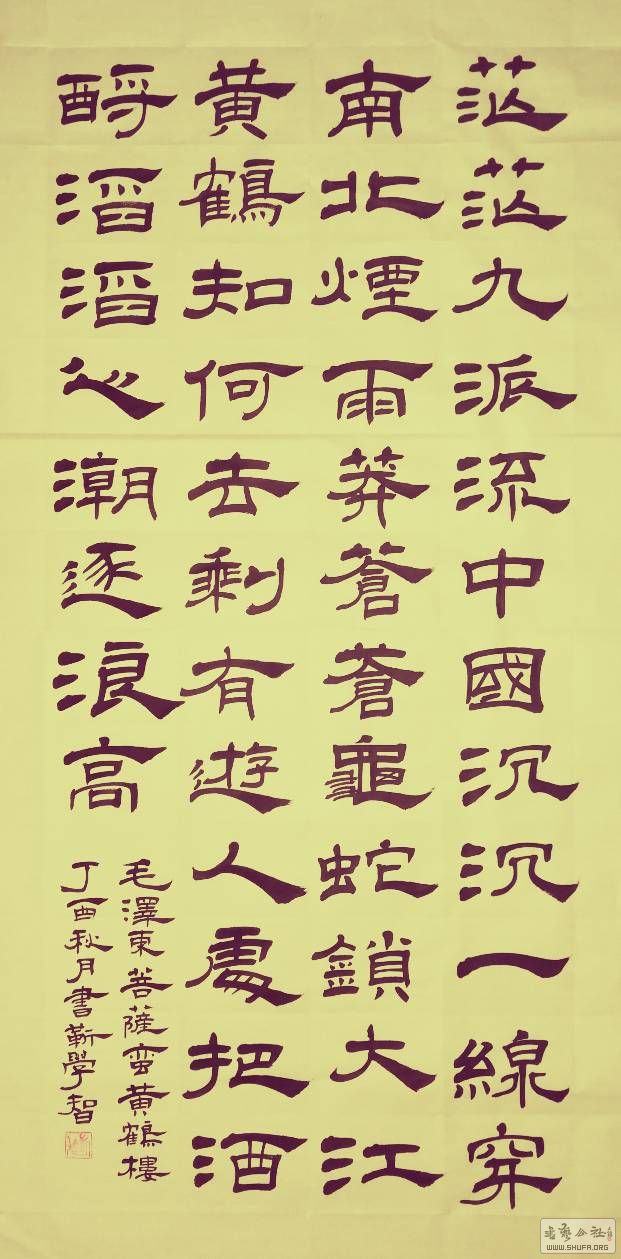 茫茫九派流中國沉沉一線穿
南北煙雨莽蒼蒼龜蛇鎖大江
黄鶴知何去剩有遊人處把酒
酹滔滔心潮逐浪高
毛澤東菩薩蛮黄鶴樓
丁酉秋月書靳學智
WWW.SHUFA.ORG